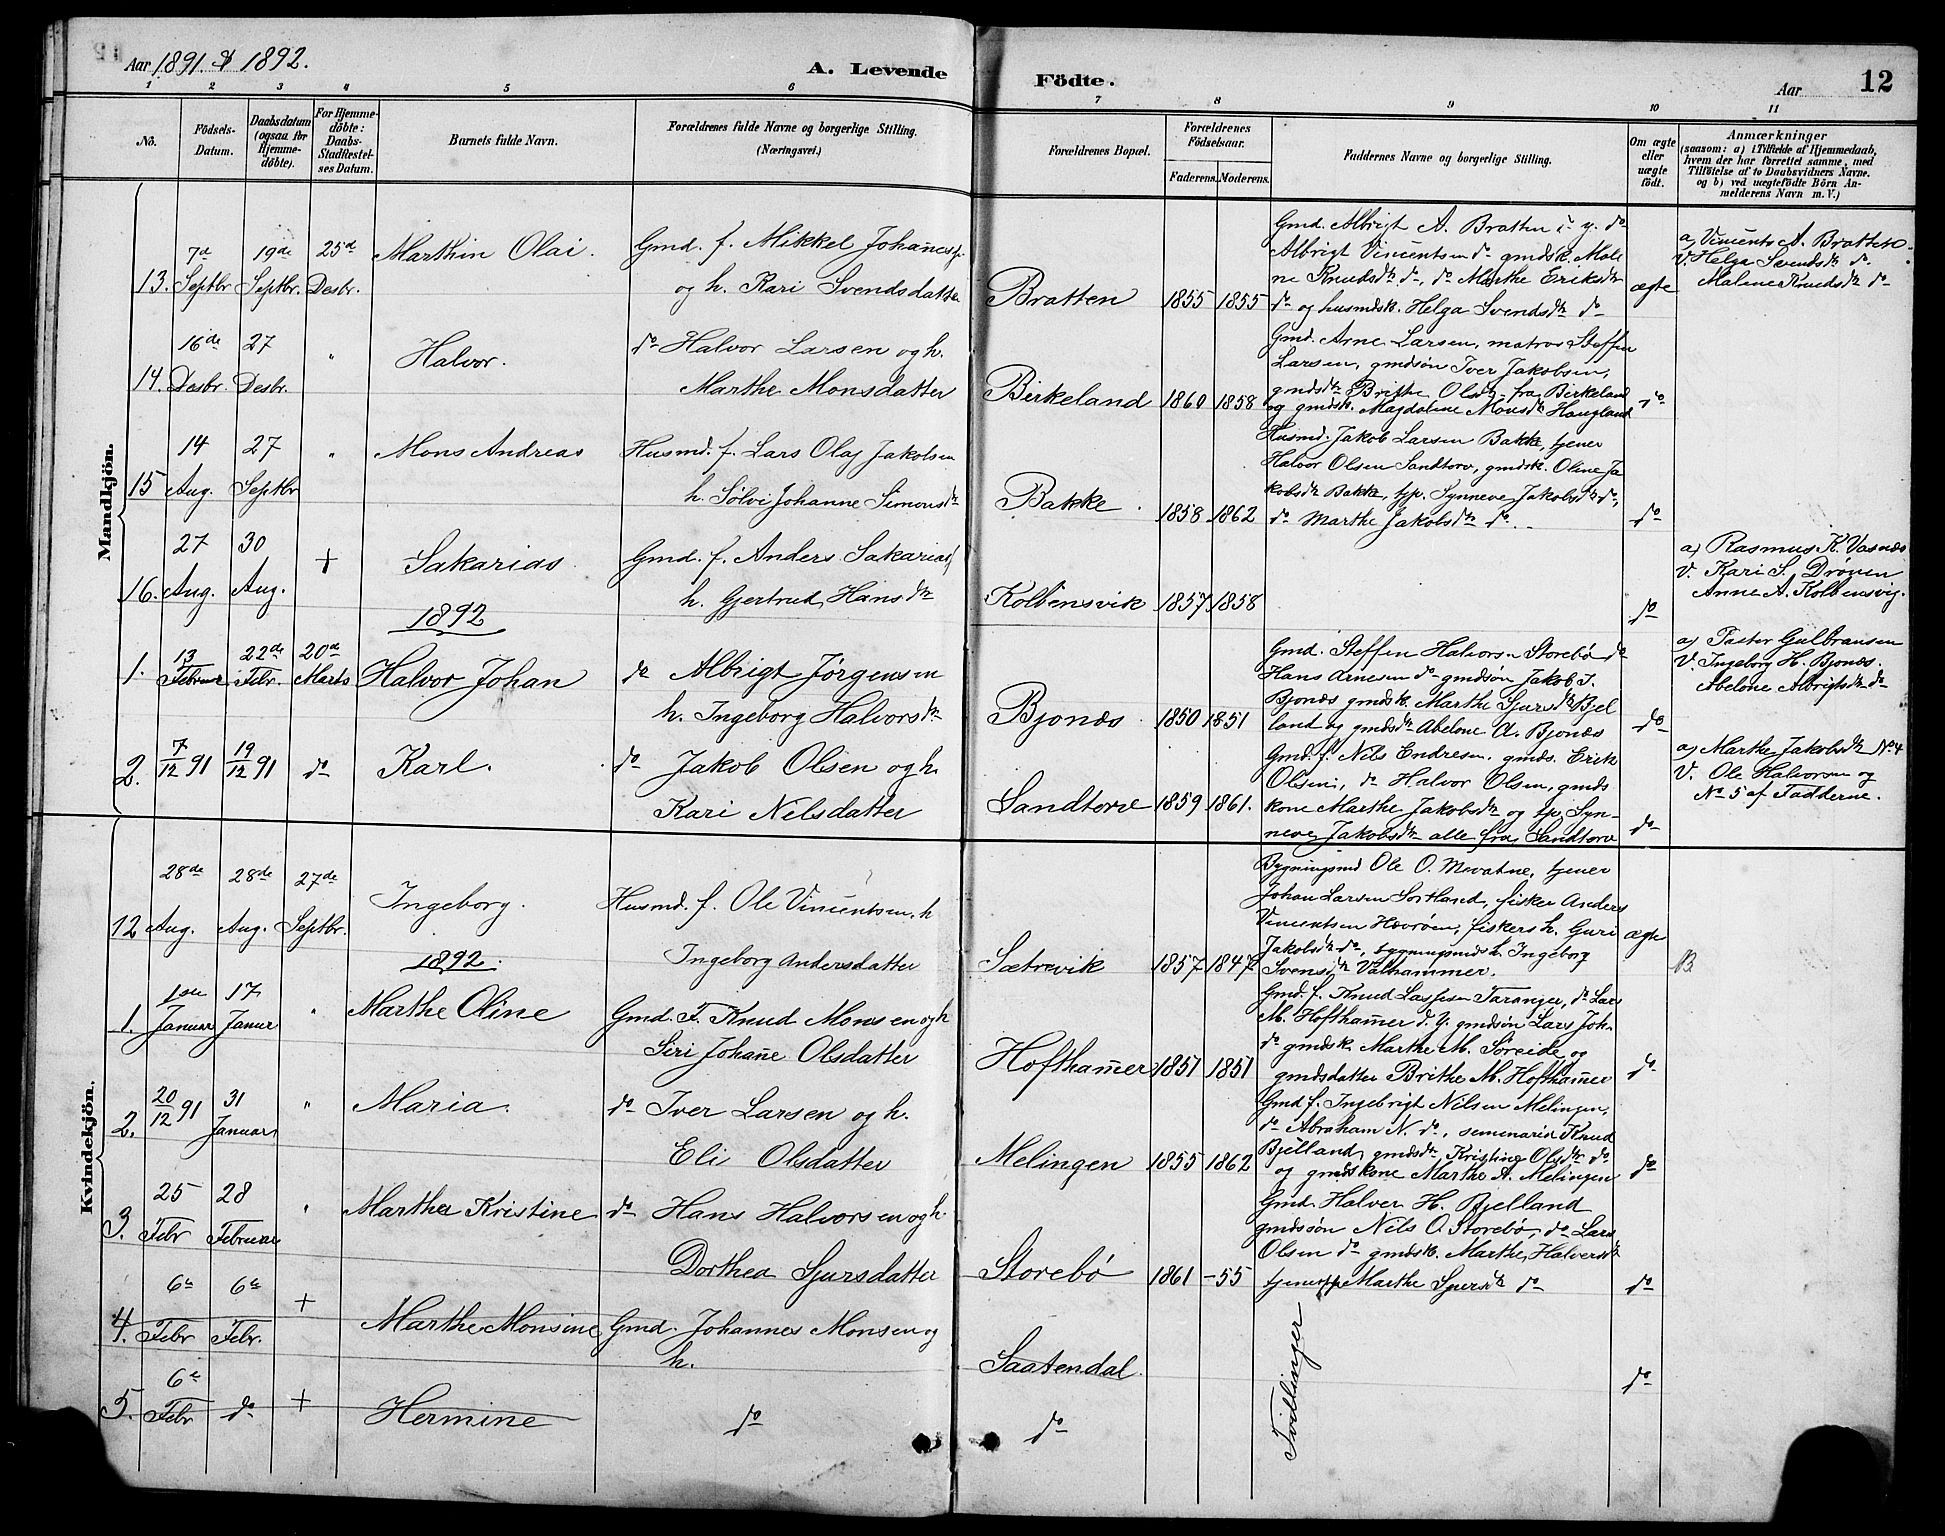 Aar 1891 & 1892.
A. Levende Födte.
Aar
12
1 2 3 4 5 6 7 8 9 10 11
No.
Födsels-Datum.
Daabsdatum (ogsaa for Hjemme-döbte).
For Hjemme-döbte: Daabs-Stadfæstel-ses Datum.
Barnets fulde Navn.
Forældrenes fulde Navne og borgerlige Stilling. (Næringsvei.)
Forældrenes Bopæl.
Forældrenes Födselsaar.
Faderens. Moderens.
Faddernes Navne og borgerlige Stilling.
Om ægte eller uægte födt.
Anmærkninger
(saasom: a) i Tilfælde af Hjemmedaab,
hvem der har forrettet samme, med
Tilföielse af to Daabsvidners Navne.
og b) ved uægtefödte Börn An-
melderens Navn m. V.)
Mandkjön.
13. 7de Septbr 19de Septbr. 25de Desbr. Marthin Olai.
Gmd. f. Mikkel Johanes
og h. Kari Svendsdatter
Bratten 1855 1855
Gmd. Albrigt A. Bratten
Albrigt Vincentsen do gmdsk. Male
ne Knudsdtr do, do Marthe Eriksdtr
do og husmdsk. Helga Svendsdtr do
ægte
a) Vincents A. Bratten
V. Helga Svendsdtr do
Malene Knudsdtr do
14. 16de Desbr. 27 Desbr. " Halvor.
do Halvor Larsen og h.
Marthe Monsdatter
Birkeland 1860 1858
Gmd. Arne Larsen, matros Steffen
Larsen, gmdsøn Iver Jakobsen,
gmdsdtr Brithe Olsdtr fra Birkeland
og gmdsk. Magdalene Monsdtr Haugland
do
15 14 Aug. 27 Septbr " Mons Andreas
Husmd. f. Lars Olaj Jakobsen
h. Sølvi Johanne Simonsdtr
Bakke. 1858 1862
Husmd. Jakob Larsen Bakke, tjener
Halvor Olsen Sandtorv, gmdsk. Oline Ja
kobsdtr Bakke, tjp. Synneve Jakobsdtr do,
do Marthe Jakobsdtr do
do
16. 27 Aug. 30 Aug. + Sakarias.
Gmd. f. Anders Sakarias
h. Gjertrud Hansdtr
Kolbensvik 1857 1858
do
a) Rasmus K. Vasnæs
V. Kari S. Drönen
Anne A. Kolbensvig.
1892
1. 13 Februar 22de Febr. 20de Marts Halvor Johan
do Albrigt Jørgensen
h. Ingeborg Halvorsdtr
Bjonæs. 1850 1851
Gmd. Steffen Halvorsn Storebø do
Hans Arnesen do gmdsøn Jakob J.
Bjonæs gmdsk. Marthe Sjursdtr Bjel
land og gmdsdtr Abelone A. Bjonæs
do
a) Pastor Gulbransen
V. Ingeborg H. Bjonæs.
Abelone Albrigtsdtr do
2. 7/12 91 19/12 91 do Karl.
do Jakob Olsen og h.
Kari Nelsdatter
Sandtorv 1859 1861.
Gmd. f. Nils Endresen. gmds. Erik
Olsen, do Halvor Olsen, gmds
kone Marthe Jakobsdtr og tjp Syn-
neve Jakobsdtr alle fra Sandtorv
do
a) Marthe Jakobsdtr No 4
V. Ole Halvorsen og
No 5 af Fadderne.
Kvindekjön.
12 28de Aug. 28de Aug. 27de Septbr. Ingeborg.
Husmd. f. Ole Vincentsen. h
Ingeborg Andersdatter
Sætrevik 1857 1847
Bygningsmd Ole O. Mevatne, tjener
Johan Larsen Sortland, fisker Anders
Vincentsen Hevröen, fiskers h. Guri
Jakobsdtr do, bygningsmds h. Ingeborg
Svensdtr Valhammer.
ægte
B.
1892.
1. 1ste Januar 17 Januar " Marthe Oline
Gmd. F. Knud Monsen og h
Siri Johane Olsdatter
Hofthamer 1851 1851
Gmd. f. Knud Lassesen Taranger, do Lars
M. Hofthamer d. y. gmdsøn Lars Joh.
do gmdsk. Marthe M. Søreide og
gmdsdatter Brithe M. Hofthamer
do
2. 20/12 91 31 Januar " Maria.
do Iver Larsen og h.
Eli Olsdatter
Melingen 1855 1862
Gmd f. Ingebrigt Nilsen Melingen,
do Abraham N. do, seminarist Knud
Bjelland, gmdsdtr Kristine Olsdtr do
og gmdskone Marthe A. Melingen
do
3. 25 Febr 28 Februar " Martha Kristine
do Hans Halvorsen og h.
Dorthea Sjursdatter
Storebø 1861 -55
Gmd. Halver H. Bjelland
gmdssön Nils O. Storebø, do Lars
Olsen do gmdsk. Marthe Halversdtr
tjenerp Marthe Sjursdtr do
do
4. 6te Febr 6te Febr. + Marthe Monsine
Gmd. Johannes Monsen og
h.
Saatendal.
do
5. 6te Febr do + Hermine
do
do
Tvillinger